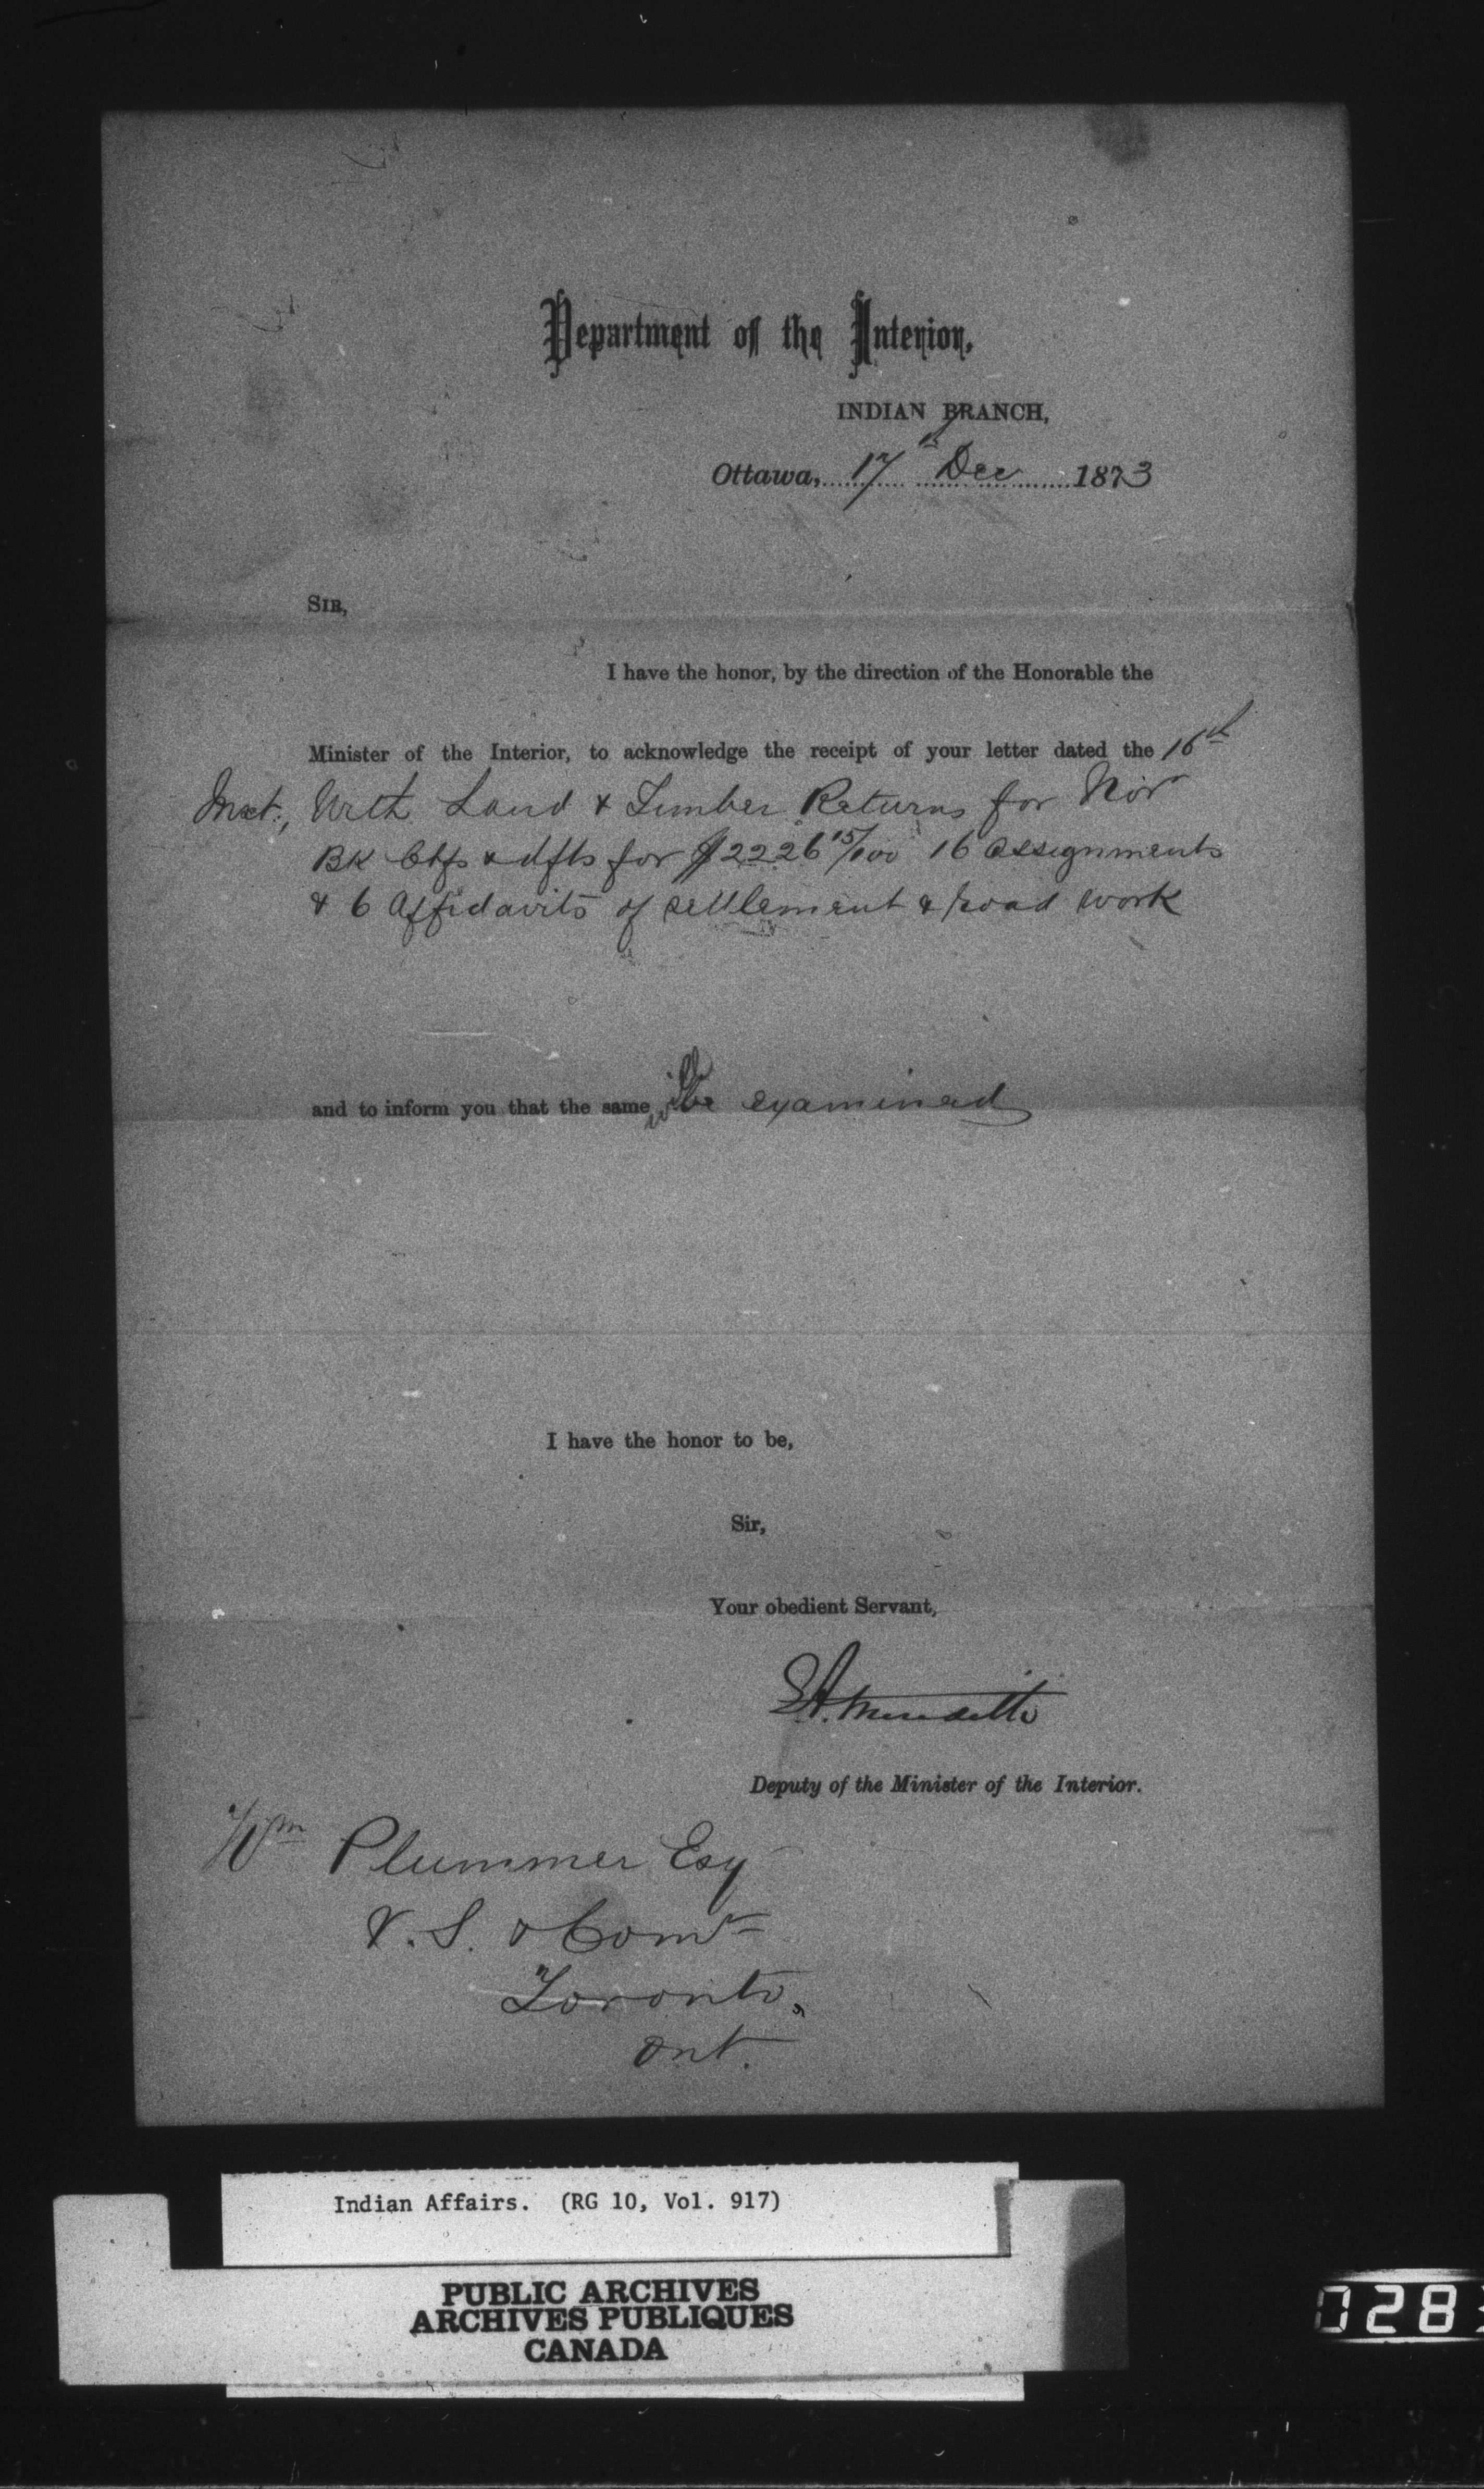 Department of the Interior,
INDIAN BRANCH,
Ottawa, 17th Dec 1873
SIR,
I have the honor, by the direction of the Honorable the
Minister of the Interior, to acknowledge the receipt of your letter dated the 16th
Inst., With Land & Timber Returns for Nov
BK Ctfs & dfts for $2226 15/100 16 Assignments
& 6 Affidavits of settlement & road work
and to inform you that the same will be examined
I have the honor to be,
Sir,
Your obedient Servant,
E.A. Meredith
Deputy of the Minister of the Interior.
Wm Plummer Esq
V.S. & Comr
Toronto,
Ont.
Indian Affairs. (RG 10, Vol. 917)
PUBLIC ARCHIVES
ARCHIVES PUBLIQUES
CANADA
028